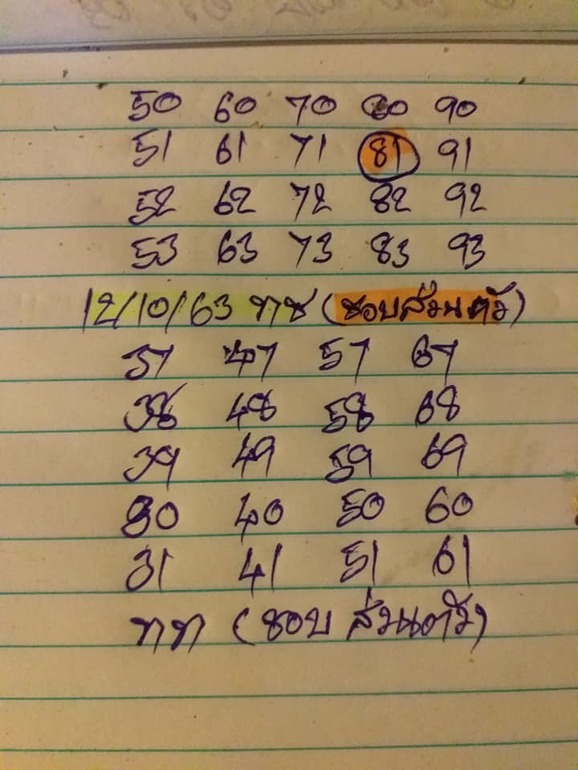 50 60 70 80 90
51 61 71 81 91
52 62 72 82 92
53 63 73 83 93
12/10/63 ทช (ชอบส่วนตัว)
37 47 57 67
38 48 58 68
39 49 59 69
30 40 50 60
31 41 51 61
ทท (ชอบ ส่วนตัว)